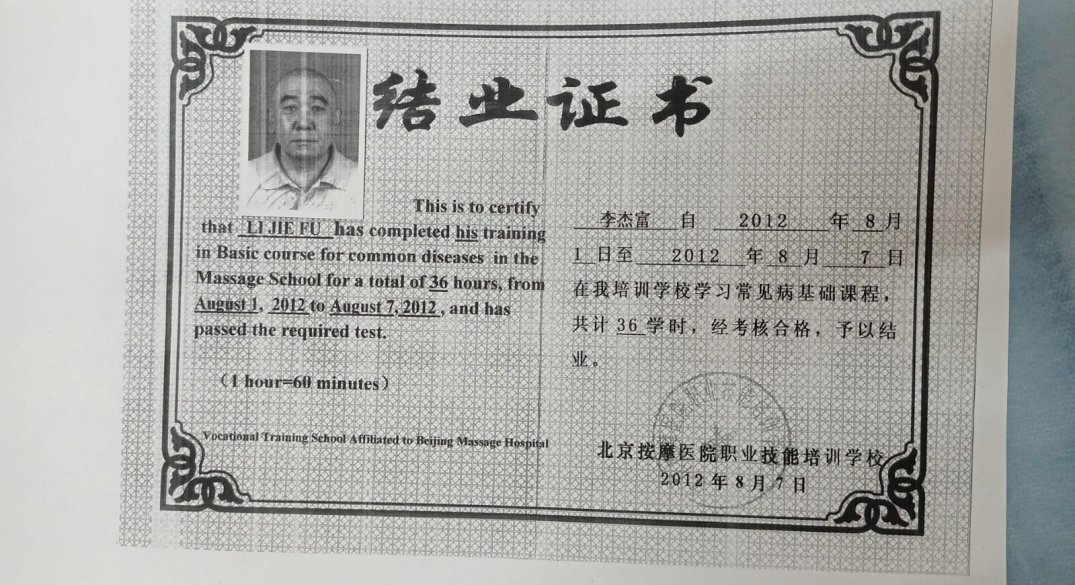 结业证书
This is to certify
that LI JIE FU has completed his training
in Basic course for common diseases in the
Massage School for a total of 36 hours, from
August 1, 2012 to August 7, 2012, and has
passed the required test.
(1 hour=60 minutes)
Vocational Training School Affiliated to Beijing Massage Hospital
李杰富 自 2012 年 8 月
1 日至 2012 年 8 月 7 日
在我培训学校学习常见病基础课程，
共计 36 学时，经考核合格，予以结
业。
北京按摩医院职业技能培训学校
2012 年 8 月 7 日